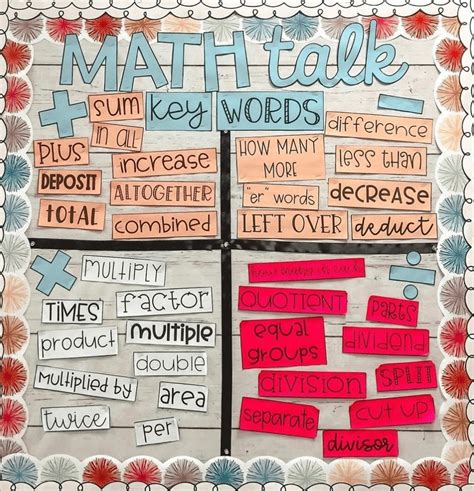 MATH talk
KEY WORDS
+
sum
in all
PLUS
increase
DEPOSIT
ALTOGETHER
TOTAL
combined
−
difference
HOW MANY MORE
less than
"er" words
decrease
LEFT OVER
deduct
×
MULTIPLY
TIMES
factor
product
multiple
double
multiplied by
area
twice
per
÷
QUOTIENT
parts
equal groups
dividend
division
SPLIT
separate
CUT UP
divisor